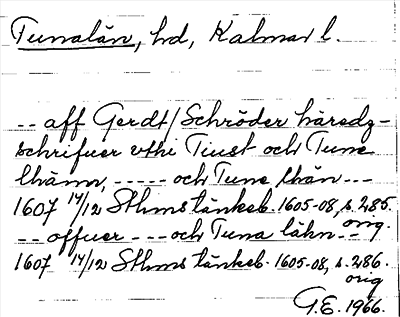 Tunalän, hd, Kalmar l.
-- aff Gerdt/Schröder häredz-
schrifuer vthi Tiust och Tune
lhänn, ----- och Tune lhän ---
1607 14/12 Sthms tänkeb. 1605-08, s. 285.
orig.
-- offuer --- och Tuna lähn --
1607 14/12 Sthms tänkeb. 1605-08, s. 286.
orig
G.E. 1966.